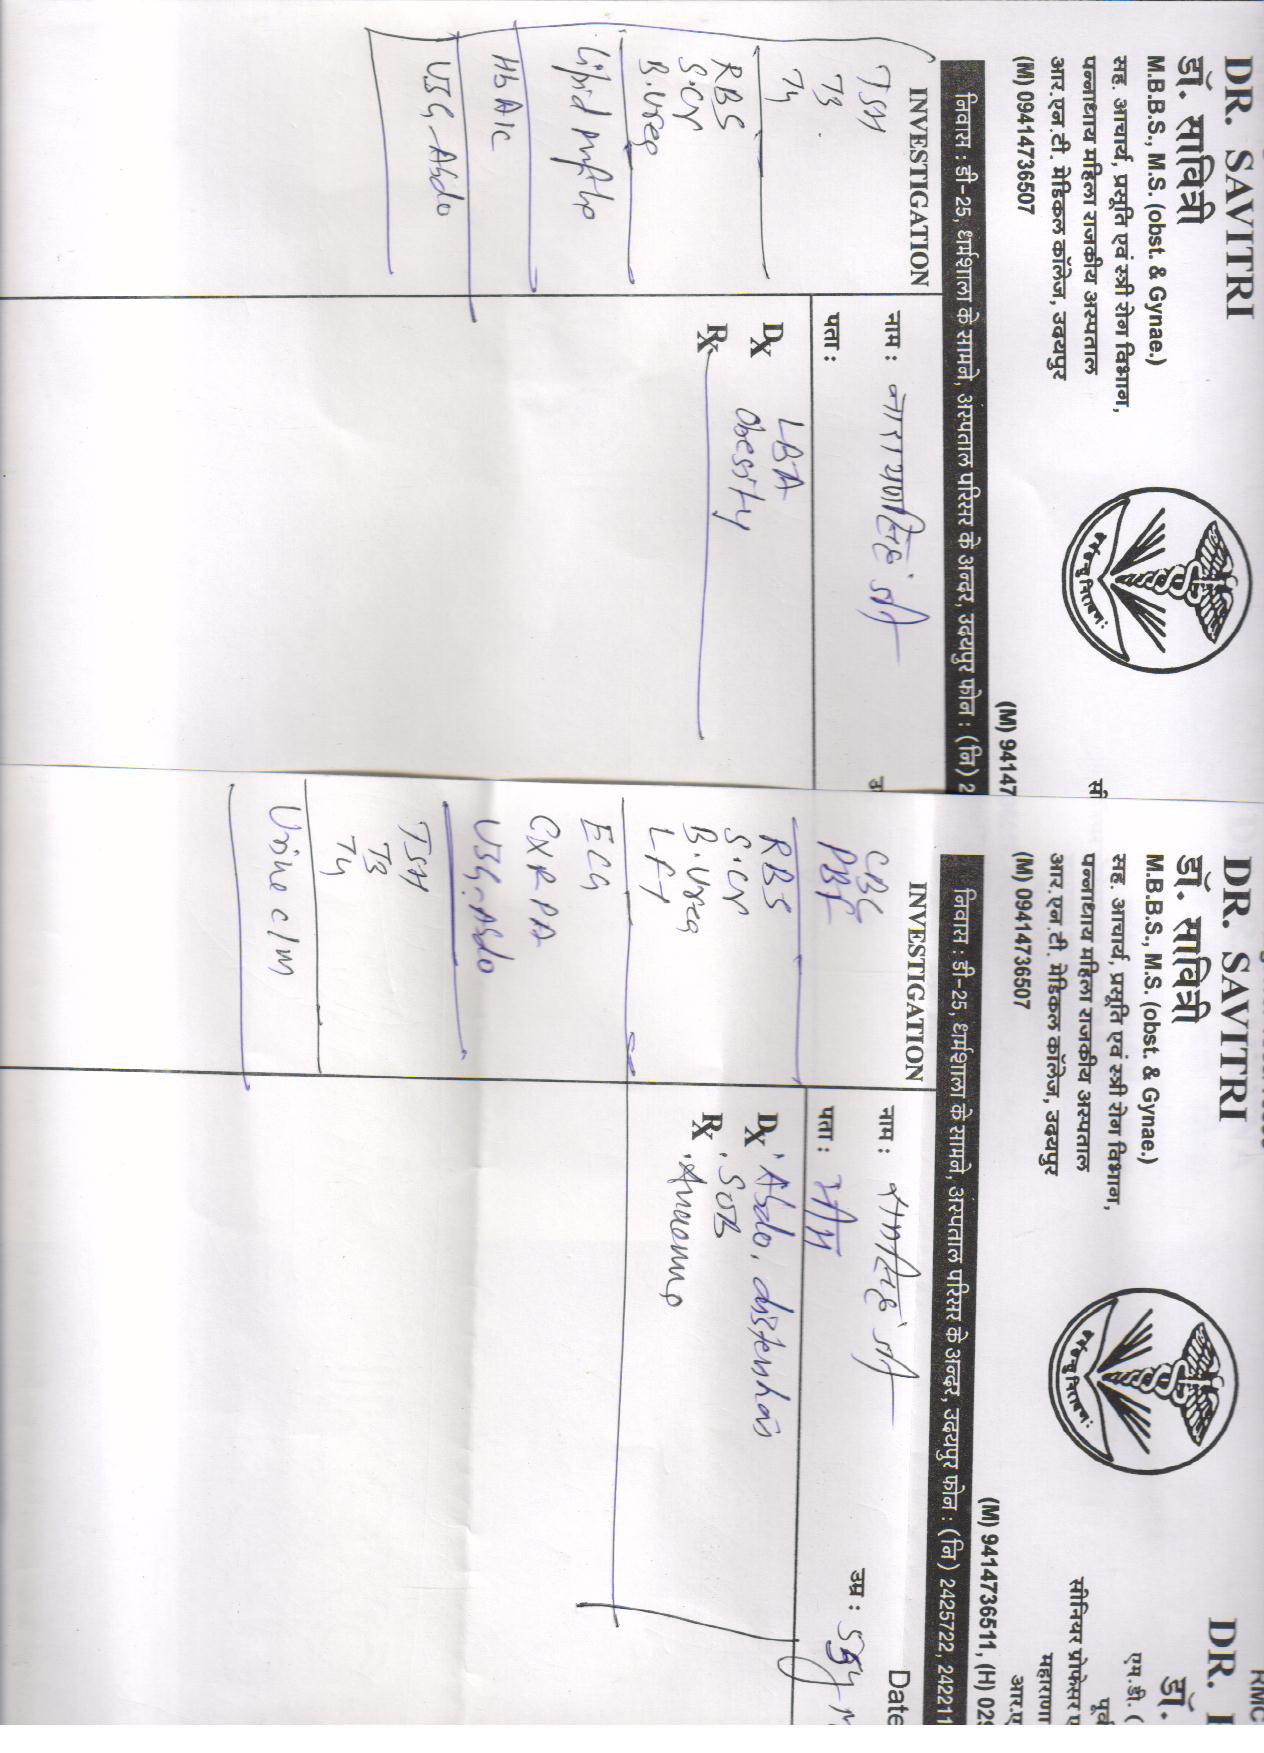 DR. SAVITRI
डॉ. सावित्री
M.B.B.S., M.S. (obst. & Gynae.)
सह. आचार्य, प्रसूति एवं स्त्री रोग विभाग,
पन्नाधाय महिला राजकीय अस्पताल
आर.एन.टी. मेडिकल कॉलेज, उदयपुर
(M) 09414736507
(M) 94147
सी
निवास : डी-25, धर्मशाला के सामने, अस्पताल परिसर के अन्दर, उदयपुर फोन : (नि) 2
INVESTIGATION
TSH
T3
T4
RBS
S.Cr
B.Urea
Lipid profile
HbA1c
USG-Abdo
नाम : नारायणसिंह जी
उ
पता :
Dx LBA
Obesity
Rx
DR. SAVITRI
डॉ. सावित्री
M.B.B.S., M.S. (obst. & Gynae.)
सह. आचार्य, प्रसूति एवं स्त्री रोग विभाग,
पन्नाधाय महिला राजकीय अस्पताल
आर.एन.टी. मेडिकल कॉलेज, उदयपुर
(M) 09414736507
RMC
DR.
डॉ.
एम.डी. (
पूर्व
सीनियर प्रोफेसर
महाराणा
आर.ए
(M) 9414736511, (H) 029
निवास : डी-25, धर्मशाला के सामने, अस्पताल परिसर के अन्दर, उदयपुर फोन : (नि) 2425722, 242211
INVESTIGATION
CBC
PBF
RBS
S.Cr
B.Urea
LFT
ECG
CXR PA
USG-Abdo
TSH
T3
T4
Urine c/m
Date
नाम : रामसिंह जी
उम्र :
पता :
Dx . Abdo. distension
. SOB
Rx . Anaemia